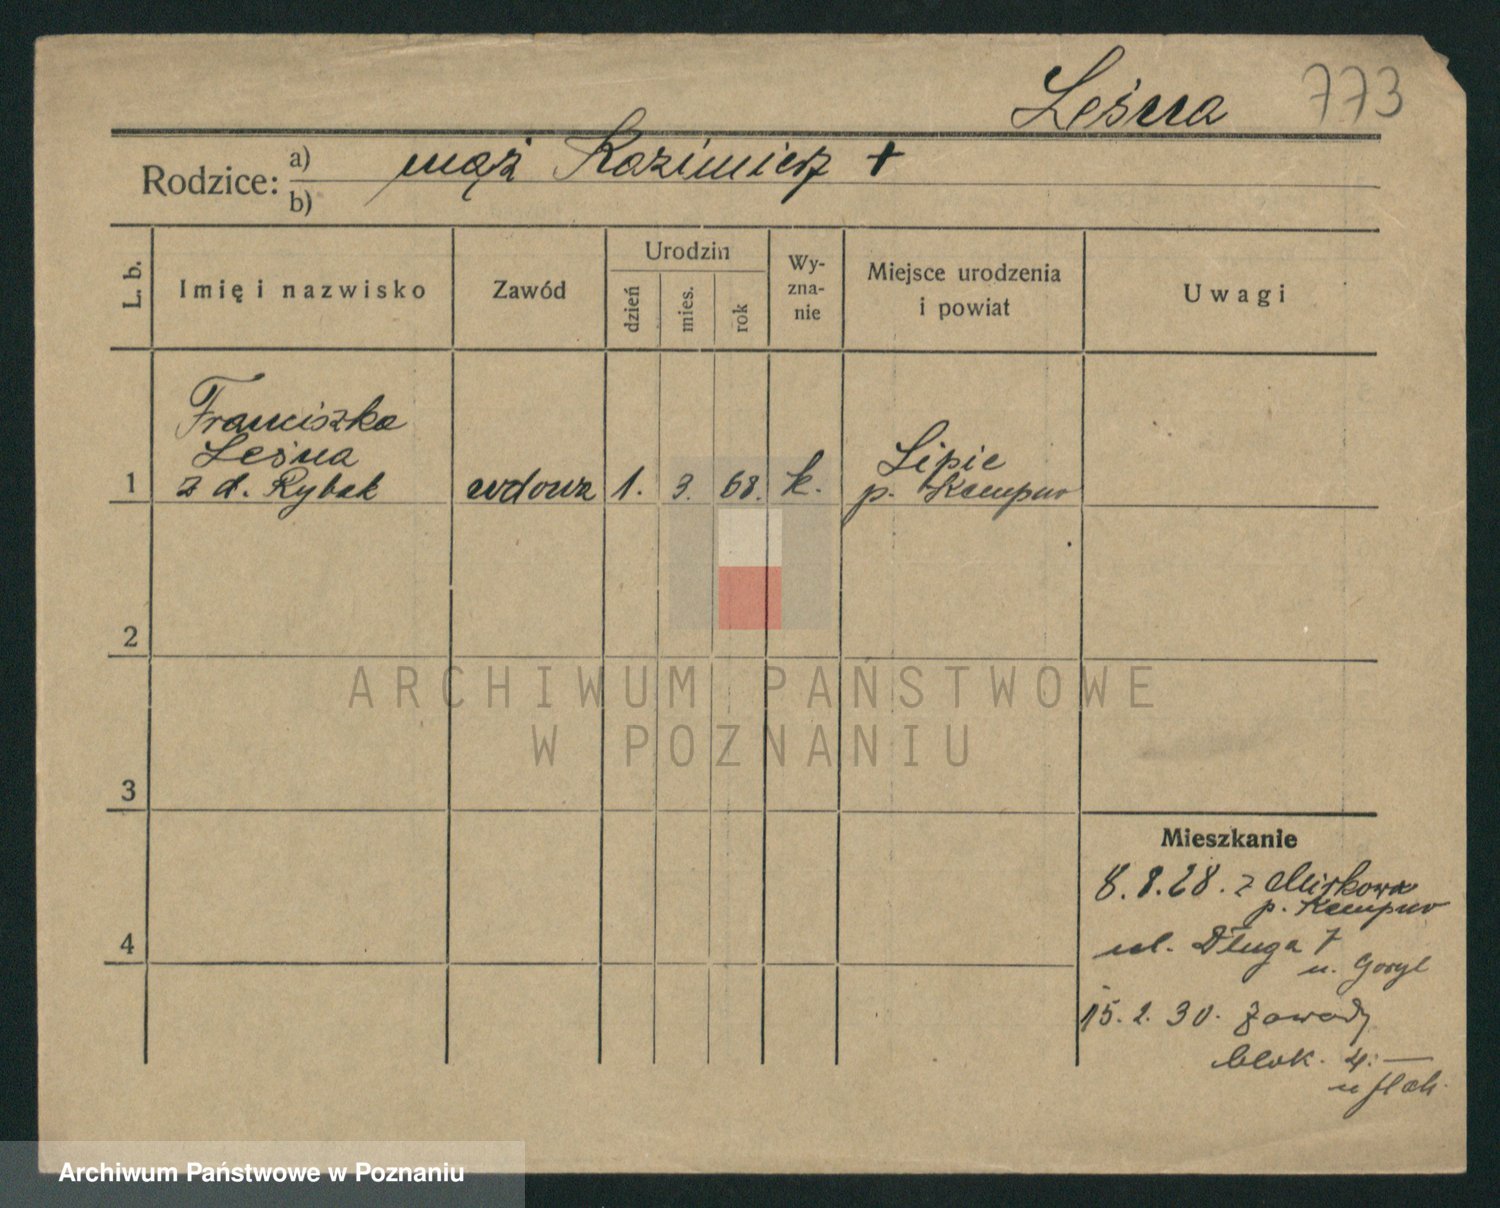 Leśna 773
Rodzice: a) mąż Kazimierz +
b)
L. b.
Imię i nazwisko
Zawód
Urodzin
dzień
mies.
rok
Wy-
zna-
nie
Miejsce urodzenia
i powiat
Uwagi
Franciszka
Leśna
1 z d. Rybak wdowa 1. 3. 68. k. Lipie
p. Kempno
2
3
4
Mieszkanie
8. 8. 28. z Mirkowa
p. Kempno
ul. Długa 7
u. Goryl
15. 2. 30. Zawady
blok. 4. —
u
ARCHIWUM PAŃSTWOWE
W POZNANIU
Archiwum Państwowe w Poznaniu